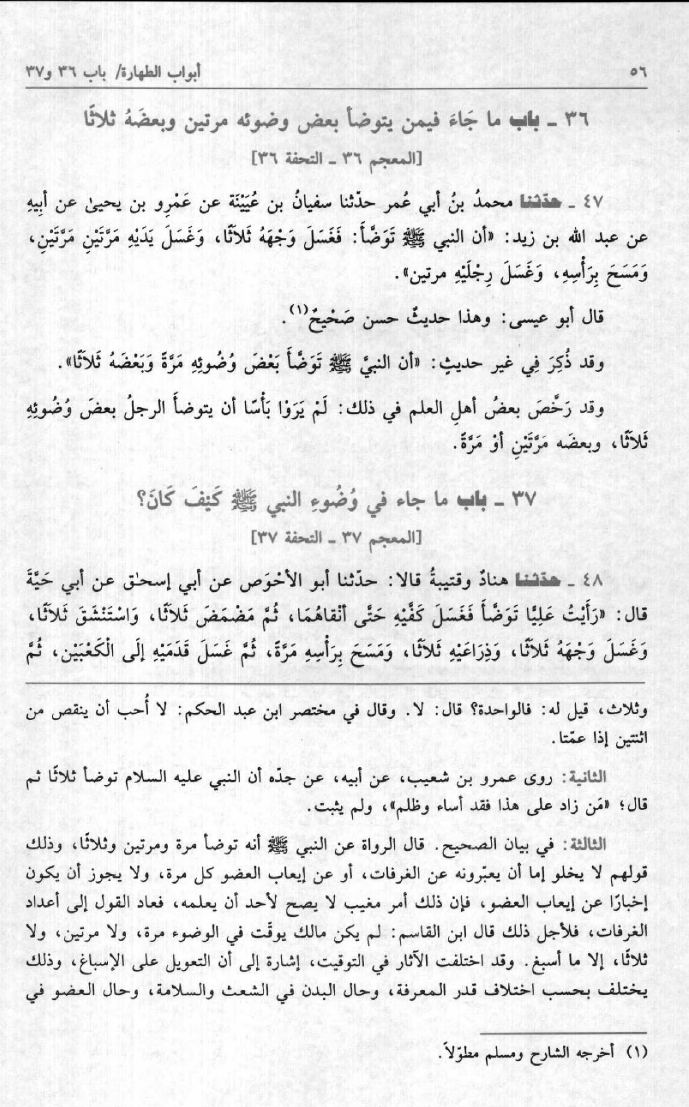 ٥٦ أبواب الطهارة/ باب ٣٦ و٣٧
٣٦ ـ باب ما جَاءَ فيمن يتوضأ بعض وضوئه مرتين وبعضَهُ ثلاثًا
[المعجم ٣٦ ـ التحفة ٣٦]
٤٧ ـ حدّثنا محمدُ بنُ أبي عُمر حدّثنا سفيانُ بن عُيَيْنَة عن عَمْرِو بن يحيىٰ عن أبيهِ
عن عبد الله بن زيد: «أن النبي ﷺ تَوَضَّأَ: فَغَسَلَ وَجْهَهُ ثَلاَثًا، وَغَسَلَ يَدَيْهِ مَرَّتَيْنِ مَرَّتَيْنِ،
وَمَسَحَ بِرَأْسِهِ، وَغَسَلَ رِجْلَيْهِ مرتين».
قال أبو عيسى: وهذا حديثٌ حسن صَحْيحٌ(١).
وقد ذُكِرَ فِي غير حديثٍ: «أن النبيَّ ﷺ تَوَضَّأَ بَعْضَ وُضُوئِهِ مَرَّةً وَبَعْضَهُ ثَلاَثًا».
وقد رَخَّصَ بعضُ أهلِ العلم في ذلك: لَمْ يَرَوْا بَأْسًا أن يتوضأ الرجلُ بعضَ وُضُوئِهِ
ثَلاَثًا، وبعضَه مَرَّتَيْنِ أوْ مَرَّةً.
٣٧ ـ باب ما جاء في وُضُوءِ النبي ﷺ كَيْفَ كَانَ؟
[المعجم ٣٧ ـ التحفة ٣٧]
٤٨ ـ حدّثنا هنادٌ وقتيبةُ قالا: حدّثنا أبو الأحْوَص عن أبي إسحٰق عن أبي حَيَّةَ
قال: «رَأَيْتُ عَلِيًّا تَوَضَّأَ فَغَسَلَ كَفَّيْهِ حَتَّى أَنْقاهُمَا، ثُمَّ مَضْمَضَ ثَلاَثًا، وَاسْتَنْشَقَ ثَلاَثًا،
وَغَسَلَ وَجْهَهُ ثَلاَثًا، وَذِرَاعَيْهِ ثَلاَثًا، وَمَسَحَ بِرَأْسِهِ مَرَّةً، ثُمَّ غَسَلَ قَدَمَيْهِ إلَى الْكَعْبَيْنِ، ثُمَّ
وثلاث، قيل له: فالواحدة؟ قال: لا. وقال في مختصر ابن عبد الحكم: لا أُحب أن ينقص من
اثنتين إذا عمّتا.
الثانية: روى عمرو بن شعيب، عن أبيه، عن جدّه أن النبي عليه السلام توضأ ثلاثًا ثم
قال؛ «مَن زاد على هذا فقد أساء وظلم»، ولم يثبت.
الثالثة: في بيان الصحيح. قال الرواة عن النبي ﷺ أنه توضأ مرة ومرتين وثلاثًا، وذلك
قولهم لا يخلو إما أن يعبّرونه عن الغرفات، أو عن إيعاب العضو كل مرة، ولا يجوز أن يكون
إخبارًا عن إيعاب العضو، فإن ذلك أمر مغيب لا يصح لأحد أن يعلمه، فعاد القول إلى أعداد
الغرفات، فلأجل ذلك قال ابن القاسم: لم يكن مالك يوقّت في الوضوء مرة، ولا مرتين، ولا
ثلاثًا، إلا ما أسبغ. وقد اختلفت الآثار في التوقيت، إشارة إلى أن التعويل على الإسباغ، وذلك
يختلف بحسب اختلاف قدر المعرفة، وحال البدن في الشعث والسلامة، وحال العضو في
(١) أخرجه الشارح ومسلم مطوّلاً.